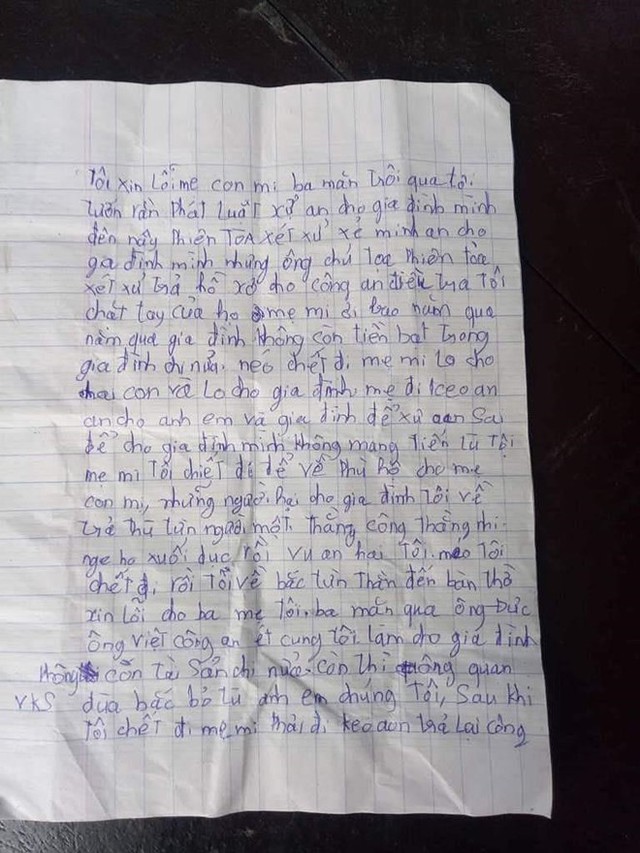 Tôi xin lỗi mẹ con mi ba măn trôi qua tô.
Luôn rần phát luật xử an cho gia đình mình
đến nầy phiên TOA xét xử xẻ minh an cho
gia đình mình nhưng ông chủ tọa phiên tòa
xét xử trả hồ xơ cho công an điều tra Tôi
chặt tay của họ mẹ mi ơi bao năm qua
năm qua gia đình không còn tiền bạt trong
gia đình chi nửa. néo chết đi mẹ mi lo cho
con và lo cho gia đình, mẹ đi keo an
an cho anh em và gia đình để xử oan Sai
để cho gia đình mình không mang tiền tù tội
mẹ mi tôi chiết đi để về phù hộ cho mẹ
con mi, những người hại cho gia đình tôi về
trả thù từn người một thằng công thằng nhi
nge họ xuối dục rồi vu an hai tôi. néo tôi
chết đi rồi tôi về bắc từn thần đến bàn thờ
xin lỗi cho ba mẹ tôi. ba măn qua ông Đức
ông việt công an ét cung tôi làm cho gia đình
không còn tài sản chi nửa. còn thì ông quan
VKS dùa bắc bỏ tù anh em chúng tôi, Sau khi
tôi chết đi mẹ mi phải đi keo aon trả lại công